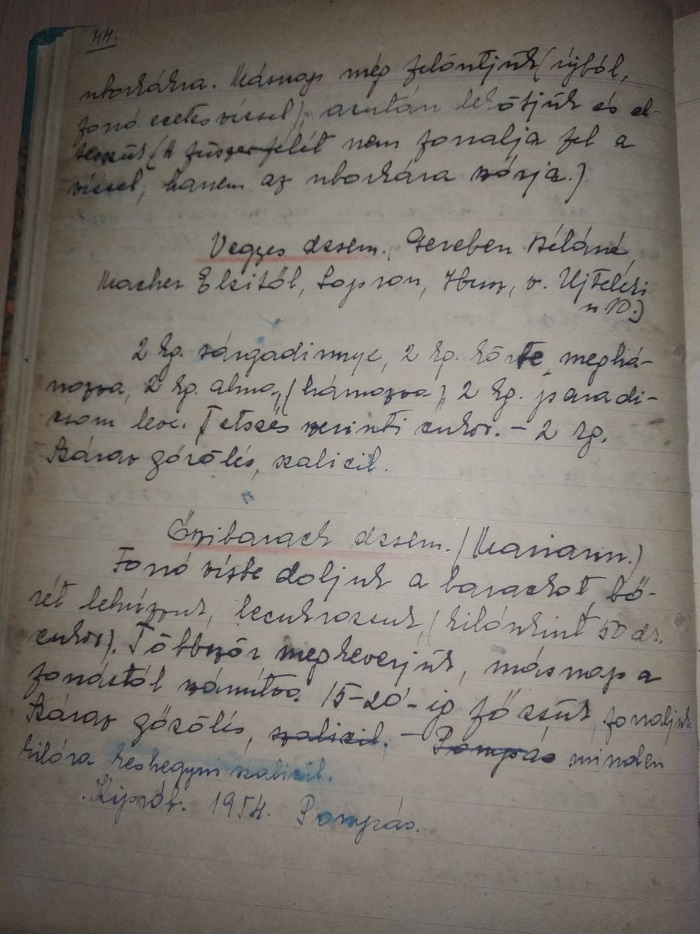 44.
uborkákra. Másnap még felöntjük (újból,
forró ecetes vízzel), azután lekötjük és el-
tesszük (A fűszer felét nem forralja fel a
vízzel, hanem az uborkára szórja.)
Vegyes dzsem. Gereben Béláné
Macher Elzitől, Sopron, v. Újteleki
u 10.)
2 kg. sárgadinnye, 2 kg. körte meghá-
mozva, 2 kg. alma, (hámozva), 2 kg. paradi-
csom leve. Tetszés szerinti cukor. - 2 kg.
Száraz gőzölés, szalicil.
Őszibarack dzsem. (Mariann.)
Forró vízbe doljuk a barackot, bő-
rét lehúzzuk, becukrozzuk, (kilónkint 50 dk.
cukor). Többször megkeverjük, másnap a
forrástól számítva 15-20'-ig főzzük, forraljuk
Száraz gőzölés, szalicil. - Pompás minden
kilóra késhegyni szalicil.
Kiprób. 1954. Pompás.